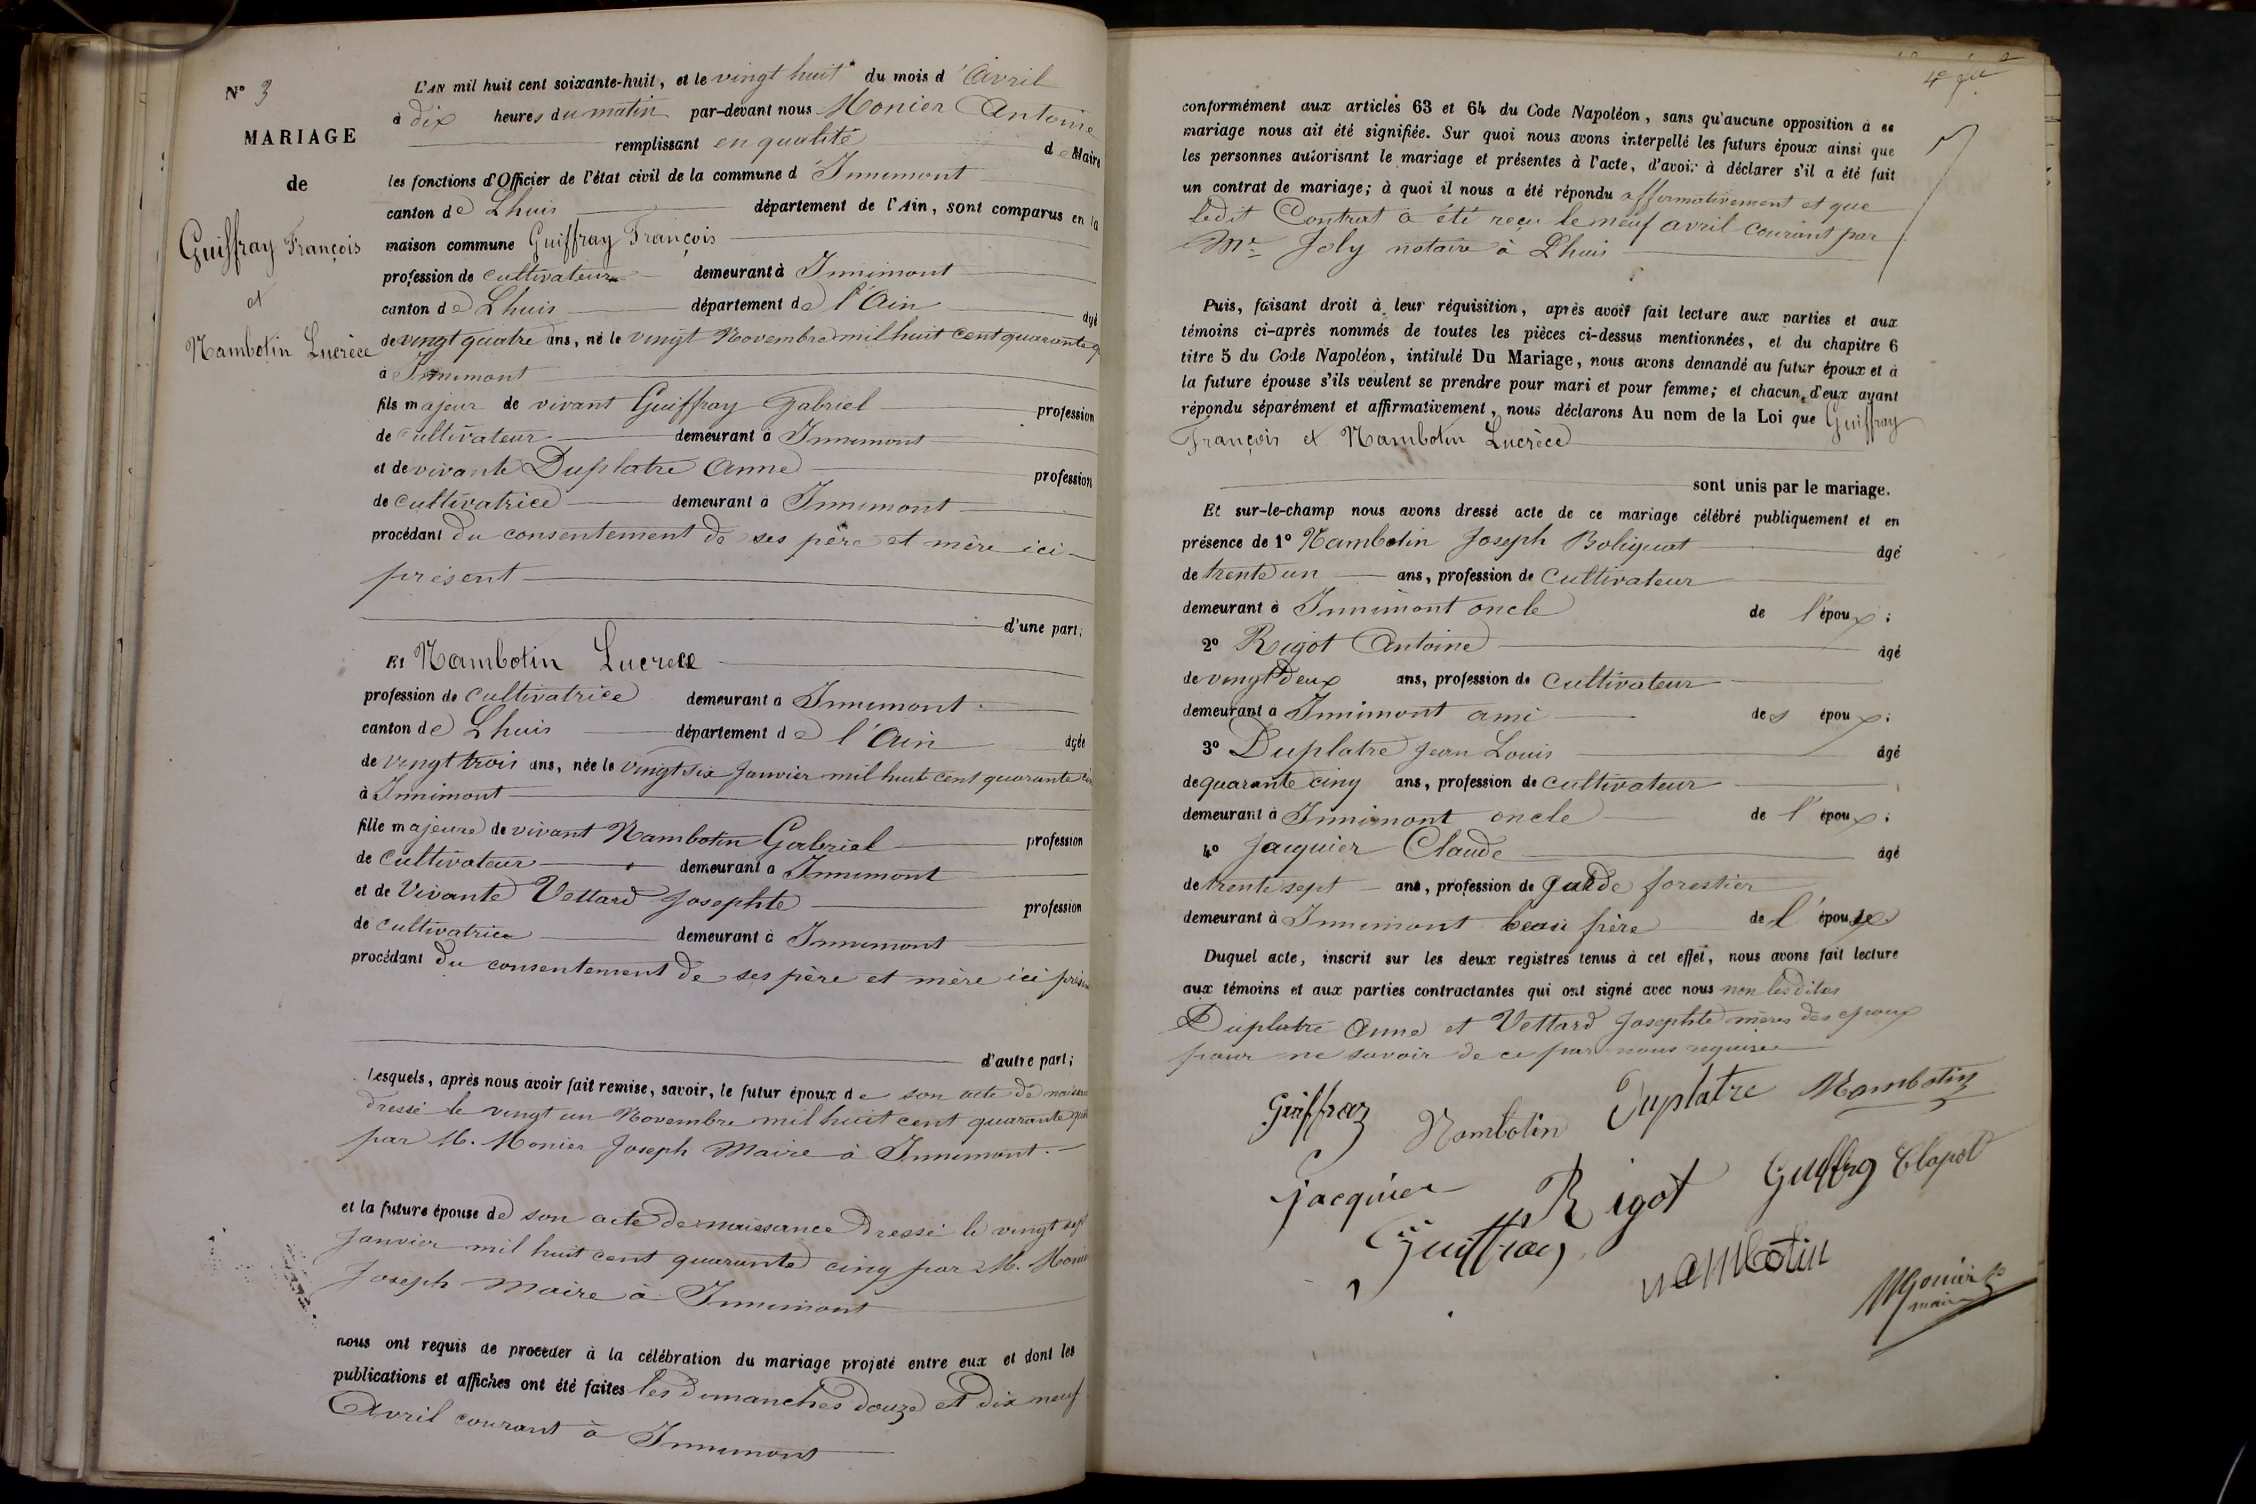 N° 3
MARIAGE
de
Guiffray François
et
Nambotin Lucrèce
L'AN mil huit cent soixante-huit, et le vingt huit du mois d'Avril
à dix heures du matin par-devant nous Monier Antoine
remplissant en qualité de Maire
les fonctions d'Officier de l'état civil de la commune d'Innimont
canton de Lhuis département de l'Ain, sont comparus en la
maison commune Guiffray François
profession de cultivateur demeurant à Innimont
canton de Lhuis département de l'Ain âgé
de vingt quatre ans, né le vingt Novembre mil huit cent quarante
à Innimont
fils majeur de vivant Guiffray Gabriel profession
de cultivateur demeurant à Innimont
et de vivante Duplatre Anne profession
de cultivatrice demeurant à Innimont
procédant du consentement de ses père et mère ici
présent
d'une part;
Et Nambotin Lucrece
profession de cultivatrice demeurant à Innimont
canton de Lhuis département de l'Ain âgée
de vingt trois ans, née le vingt six Janvier mil huit cent quarante
à Innimont
fille majeure de vivant Nambotin Gabriel profession
de cultivateur demeurant à Innimont
et de Vivante Vettard Josephte profession
de cultivatrice demeurant à Innimont
procédant du consentement de ses père et mère ici
d'autre part;
Lesquels, après nous avoir fait remise, savoir, le futur époux de son acte de
dressé le vingt un Novembre mil huit cent quarante
par M. Monier Joseph Maire à Innimont.
et la future épouse de son acte de naissance dressé le vingt sept
Janvier mil huit cent quarante cinq par M. Monier
Joseph Maire à Innimont
nous ont requis de procéder à la célébration du mariage projeté entre eux et dont les
publications et affiches ont été faites les dimanches douze et dix neuf
Avril courant à Innimont
conformément aux articles 63 et 64 du Code Napoléon, sans qu'aucune opposition à ce
mariage nous ait été signifiée. Sur quoi nous avons interpellé les futurs époux ainsi que
les personnes autorisant le mariage et présentes à l'acte, d'avoir à déclarer s'il a été fait
un contrat de mariage; à quoi il nous a été répondu affirmativement et que
ledit Contrat a été reçu le neuf avril courant par
Me Joly notaire à Lhuis
Puis, faisant droit à leur réquisition, après avoir fait lecture aux parties et aux
témoins ci-après nommés de toutes les pièces ci-dessus mentionnées, et du chapitre 6
titre 5 du Code Napoléon, intitulé Du Mariage, nous avons demandé au futur époux et à
la future épouse s'ils veulent se prendre pour mari et pour femme; et chacun d'eux ayant
répondu séparément et affirmativement, nous déclarons Au nom de la Loi que Guiffray
François et Nambotin Lucrèce
sont unis par le mariage.
Et sur-le-champ nous avons dressé acte de ce mariage célébré publiquement et en
présence de 1° Nambotin Joseph Boliguat âgé
de trente un ans, profession de cultivateur
demeurant à Innimont oncle de l'époux;
2° Rigot Antoine âgé
de vingt deux ans, profession de cultivateur
demeurant à Innimont ami des époux;
3° Duplatre Jean Louis âgé
de quarante cinq ans, profession de cultivateur
demeurant à Innimont oncle de l'époux;
4° Jacquier Claude âgé
de trente sept ans, profession de garde forestier
demeurant à Innimont beau frère de l'épouse
Duquel acte, inscrit sur les deux registres tenus à cet effet, nous avons fait lecture
aux témoins et aux parties contractantes qui ont signé avec nous non lesdites
Duplatre Anne et Vettard Josephte mères des époux
pour ne savoir de ce par nous requises
Guiffray Nambotin Duplatre Nambotin
Jacquier Rigot Guiffray Clapot
Guiffray Nambotin
Monier
maire